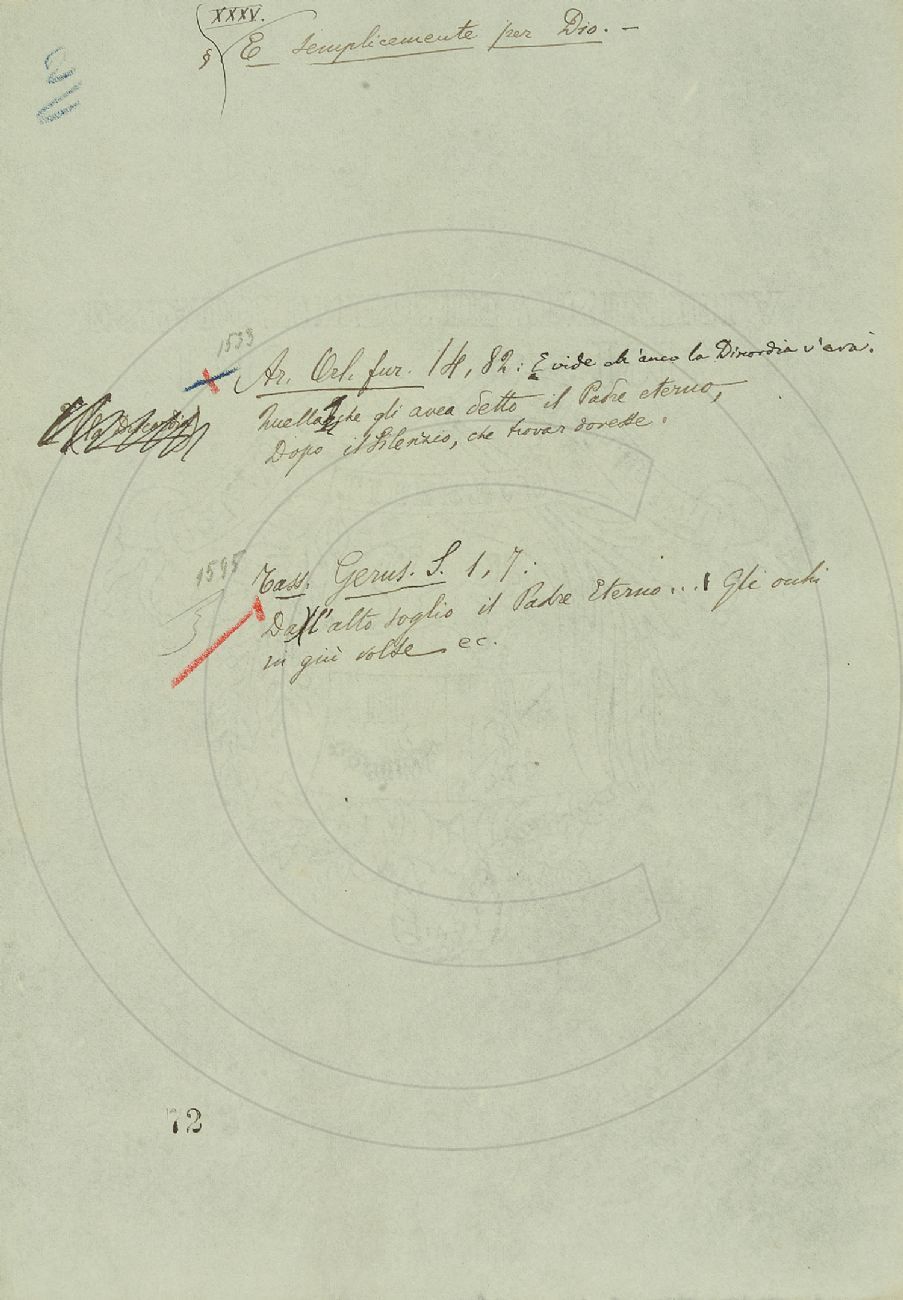 XXXV.
§ E semplicemente per Dio. –
1533
Ar. Orl. fur. 14, 82: E vide ch'anco la Discordia v'era:
Quella che gli avea detto il Padre eterno,
Dopo il Silenzio, che trovar dovesse.
1595
Tass. Gerus. S. 1, 7:
Dall'alto soglio il Padre Eterno... Gli occhi
in giù volse ec.
72